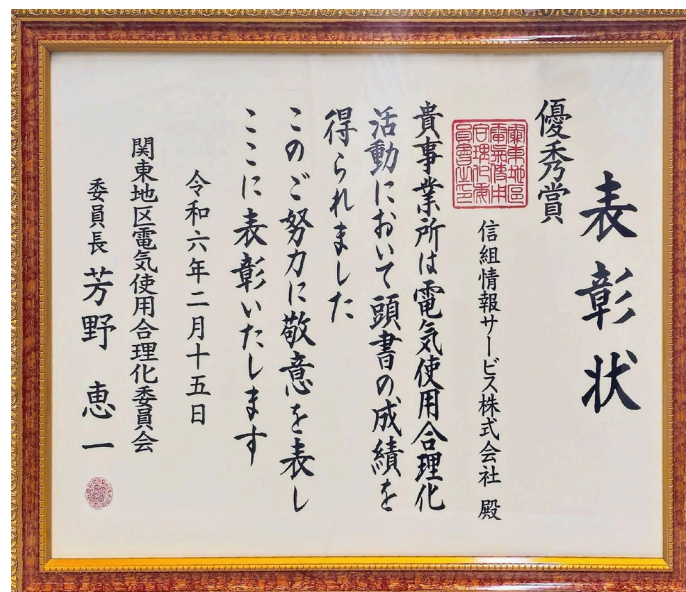 表彰状
優秀賞
信組情報サービス株式会社 殿
貴事業所は電気使用合理化
活動において頭書の成績を
得られました
このご努力に敬意を表し
ここに表彰いたします
令和六年二月十五日
関東地区電気使用合理化委員会
委員長 芳野 恵一